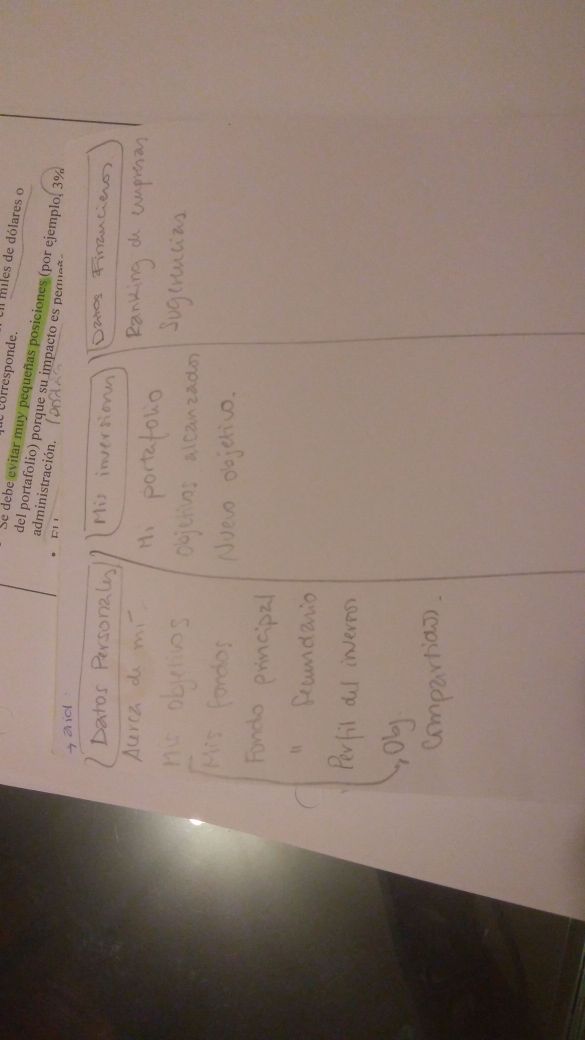 en miles de dólares o
que corresponde.
Se debe evitar muy pequeñas posiciones (por ejemplo, 3%
del portafolio) porque su impacto es
administración.
→ aid.
Datos Personales
Acerca de mí
Mis objetivos
Mis fondos
Fondo principal
" Secundario
Perfil del inversor
Obj.
Compartidos.
Mis inversiones
Mi portafolio
Objetivos alcanzados
Nuevo objetivo.
Datos Financieros
Ranking de empresas
Sugerencias